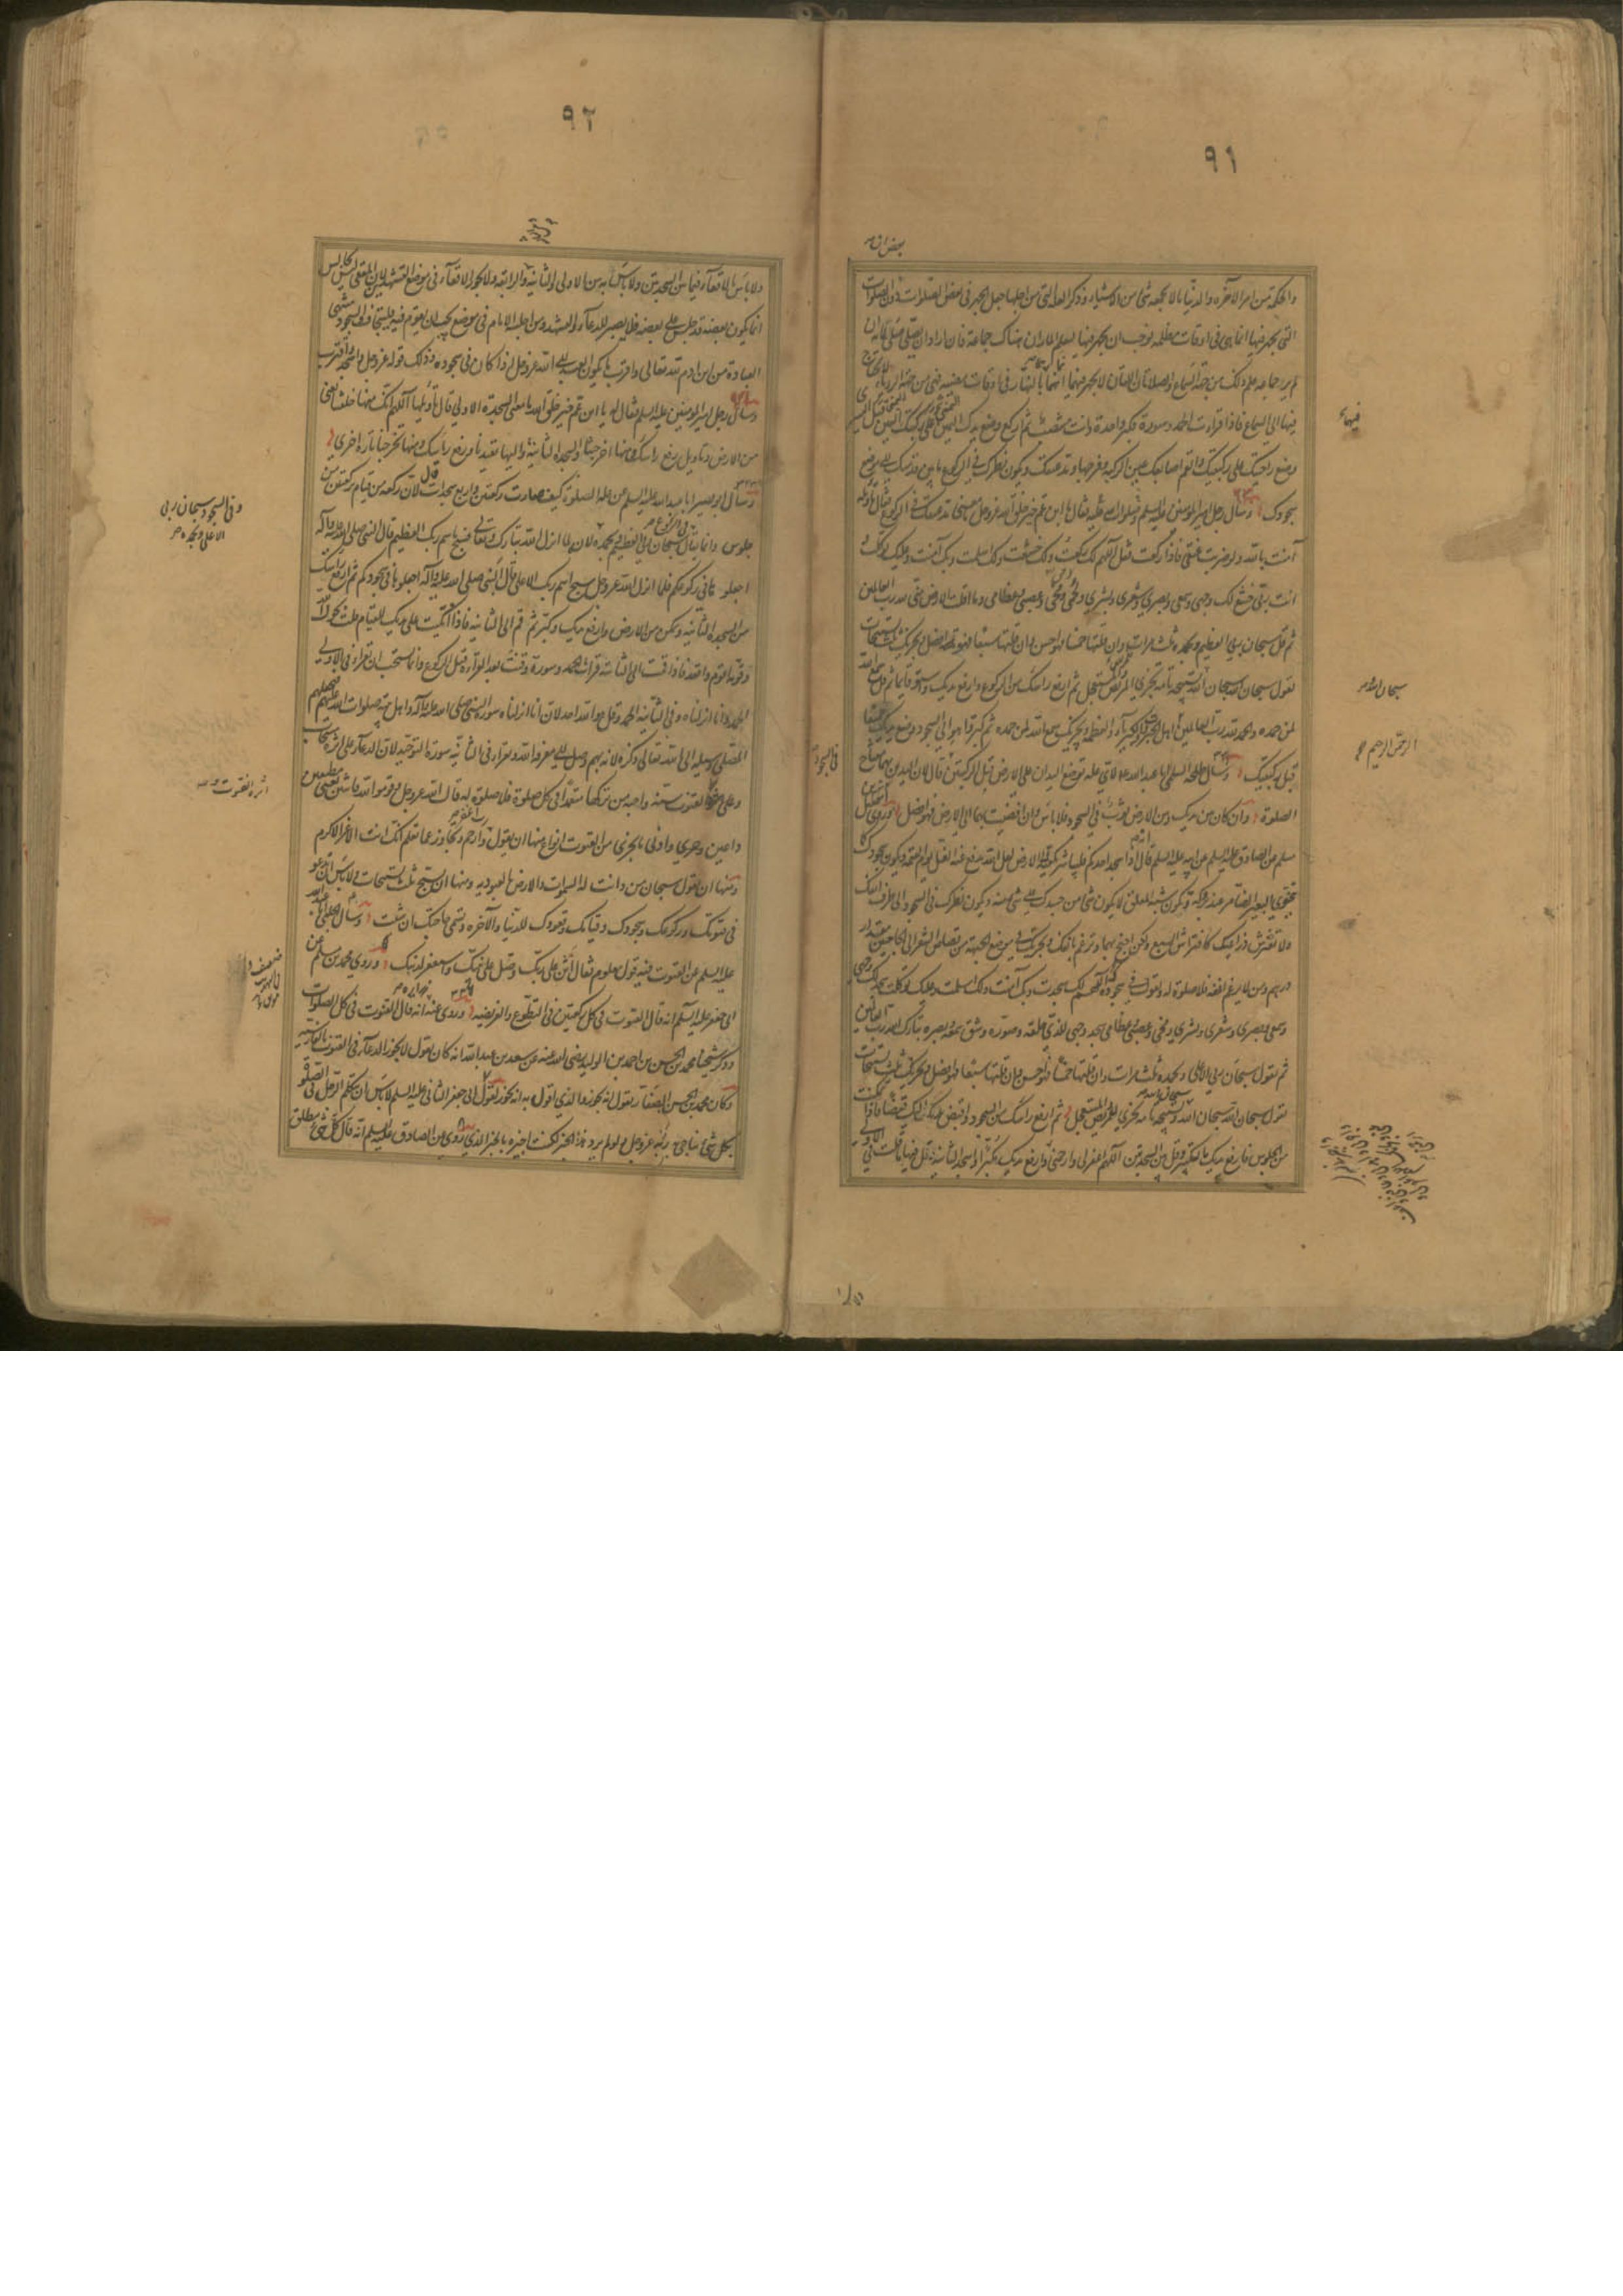 ٩١
والحكمة من امر الآخرة والدنيا ما لا يجمعه شئ من الاشياء وذكر العلة التى من اجلها جعل الجهر فى بعض الصلوات دون الصلوات
التى يجهر فيها انما هى فى اوقات مظلمة فوجب ان يجهر فيها ليعلم المار ان هناك جماعة فان اراد ان يصلى صلى لانه ان
لم ير جماعة علم ذلك من جهة السماع والصلاتان اللتان لا يجهر فيهما انما هما بالنهار فى اوقات مضيئة فهى من جهة الرؤية لا يحتاج
فيها الى السماع فاذا قرأت الحمد وسورة فكبر واحدة وانت منتصب ثم اركع وضع يدك اليمنى على ركبتك اليمنى قبل اليسرى
وضع راحتيك على ركبتيك والقم اصابعك عين الركبة وفرجها ومد عنقك ويكون نظرك فى الركوع ما بين قدميك الى موضع
سجودك وسأل رجل امير المؤمنين عليه السلم فقال له يا ابن عم خير خلق الله عز وجل ما معنى مد عنقك فى الركوع فقال تأويله
آمنت بالله ولو ضربت عنقى فاذا ركعت فقل اللهم لك ركعت ولك خشعت ولك اسلمت وبك آمنت وعليك توكلت و
انت ربى خشع لك وجهى وسمعى وبصرى وشعرى وبشرى ولحمى ودمى ومخى وعصبى وعظامى وما اقلت الارض منى لله رب العالمين
ثم قل سبحان ربى العظيم وبحمده ثلث مرات وان قلتها خمسا فهو احسن وان قلتها سبعا فهو افضل ويجزيك ثلث تسبيحات
تقول سبحان الله سبحان الله تسبيحة تامة تجزى للمريض والمستعجل ثم ارفع رأسك من الركوع وارفع يديك واستو قايما ثم قل سمع الله
لمن حمده والحمد لله رب العالمين اهل الجبروت والكبرياء والعظمة ويجزيك سمع الله لمن حمده ثم كبر واهو الى السجود وضع يديك جميعا
قبل ركبتيك وسأل طلحة السلمى ابا عبد الله لاى علة توضع اليدان على الارض قبل الركبتين قال لان اليدين بهما مفتاح
الصلوة وان كان بين يديك وبين الارض ثوب فى السجود فلا بأس وان افضيت بهما الى الارض فهو افضل وروى اسمعيل بن
مسلم عن الصادق عليه السلم عن ابيه عليه السلم انه قال اذا سجد احدكم فليباشر بكفيه الارض لعل الله يدفع عنه الغل يوم القيمة ويكون سجودك كما
يتخوى البعير الضامر عند بروكه وتكون شبه المعلق لا يكون شئ من جسدك على شئ منه ويكون نظرك فى السجود الى طرف انفك
ولا تفترش ذراعيك كافتراش السبع ولكن اجنح بهما وترغم بانفك ويجزيك فى موضع الجبهة من قصاص الشعر الى الحاجبين مقدار
درهم ومن لا يرغم انفه فلا صلوة له وتقول فى سجودك اللهم لك سجدت وبك آمنت ولك اسلمت وعليك توكلت سجد لك وجهى
وسمعى وبصرى وشعرى وبشرى ومخى وعصبى وعظامى سجد وجهى للذى خلقه وصوره وشق سمعه وبصره تبارك الله رب العالمين
ثم تقول سبحان ربى الاعلى وبحمده ثلث مرات وان قلتها خمسا فهو احسن وان قلتها سبعا فهو افضل ويجزيك ثلث تسبيحات
تقول سبحان الله سبحان الله سبحان الله وتسبيحة تامة تجزى للمريض والمستعجل ثم ارفع رأسك من السجود واقبض يديك اليك قبضا فاذا تمكنت
من الجلوس فارفع يديك بالتكبير وقل بين السجدتين اللهم اغفر لى وارحمنى وارفع يديك مكبرا واسجد الثانية وقل فيها ما قلت فى الاولى
فيهما
سبحان الله
الرحمن الرحيم
فى السجود
٩٢
ولا بأس بالاقعاء فيما بين السجدتين ولا بأس به بين الاولى والثانية والرابعة ولا يجوز الاقعاء فى موضع التشهدين لان المقعى ليس بجالس
انما يكون بعضه قد جلس على بعضه فلا يصبر للدعاء والتشهد ومن اجلسه الامام فى موضع يجب ان يقوم فيه فليتجاف والسجود منتهى
العبادة من ابن آدم لله تعالى واقرب ما يكون العبد الى الله عز وجل اذا كان فى سجوده وذلك قوله عز وجل واسجد واقترب
وسأل رجل امير المؤمنين عليه السلم فقال له يا ابن عم خير خلق الله ما معنى السجدة الاولى قال تأويلها اللهم انك منها خلقتنا يعنى
من الارض وتأويل رفع رأسك ومنها اخرجتنا والسجدة الثانية واليها تعيدنا ورفع رأسك ومنها تخرجنا تارة اخرى
وسأل ابو بصير ابا عبد الله عليه السلم عن علة الصلوة كيف صارت ركعتين واربع سجدات قال لان ركعة من قيام بركعتين من
جلوس وانما يقال فى الركوع سبحان ربى العظيم وبحمده لانه لما انزل الله تبارك وتعالى فسبح باسم ربك العظيم قال النبى صلى الله عليه وآله
اجعلوها فى ركوعكم فلما انزل الله عز وجل سبح اسم ربك الاعلى قال النبى صلى الله عليه وآله اجعلوها فى سجودكم ثم ارفع رأسك
من السجدة الثانية وتمكن من الارض وارفع يديك وكبر ثم قم الى الثانية فاذا اتكيت على يديك للقيام قلت بحول الله
وقوته اقوم واقعد فاذا قمت الى الثانية قرأت الحمد وسورة وقنت بعد القراءة وقبل الركوع وانما يستحب ان تقرأ فى الاولى
الحمد وانا انزلناه وفى الثانية الحمد وقل هو الله احد لان انا انزلناه سورة النبى صلى الله عليه وآله واهل بيته صلوات الله عليهم فيجعلهم
المصلى وسيلة الى الله تعالى ذكره لانه بهم وصل الى معرفة الله وتقرأ فى الثانية سورة التوحيد لان الدعاء على اثره مستجاب
وعلى اثره القنوت والقنوت سنة واجبة من تركها متعمدا فى كل صلوة فلا صلوة له قال الله عز وجل وقوموا لله قانتين يعنى مطيعين
داعين وادنى ما يجزى من القنوت انواع منها ان يقول رب اغفر وارحم وتجاوز عما تعلم انك انت الاعز الاكرم
ومنها ان تقول سبحان من دانت له السموات والارض بالعبودية ومنها ان تسبح ثلث تسبيحات ولا بأس ان تدعو
فى قنوتك وركوعك وسجودك وقيامك وقعودك للدنيا والآخرة وتسمى حاجتك ان شئت وسأل الحلبى ابا عبد الله
عليه السلم عن القنوت فيه قول معلوم فقال اثن على ربك وصل على نبيك واستغفر لذنبك وروى محمد بن مسلم عن
ابى جعفر عليه السلم انه قال القنوت فى كل ركعتين فى التطوع والفريضة وروى عنه زرارة انه قال القنوت فى كل الصلوات
وذكر شيخنا محمد بن الحسن بن احمد بن الوليد رضى الله عنه عن سعد بن عبد الله انه كان يقول لا يجوز الدعاء فى القنوت بالفارسية
وكان محمد بن الحسن الصفار يقول انه يجوز والذى اقول به انه يجوز لقول ابى جعفر الثانى عليه السلم لا بأس ان يتكلم الرجل فى الصلوة
بكل شئ يناجى به ربه عز وجل ولو لم يرد هذا الخبر لكنت اجيزه بالخبر الذى روى عن الصادق عليه السلم انه قال كل شئ مطلق
وفى السجود سبحان ربى
الاعلى وبحمده